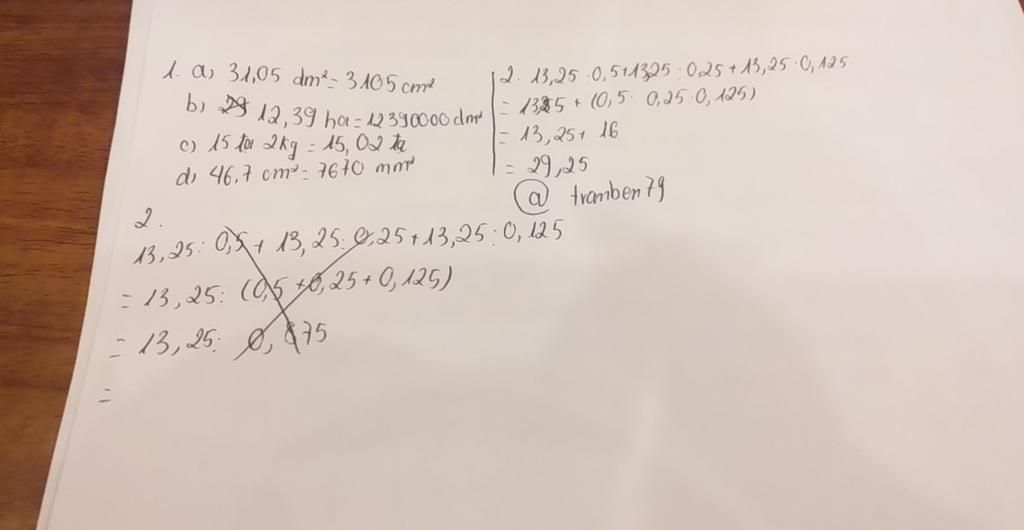 1. a) 31,05 dm² = 3105 cm²
b) 12,39 ha = 12390000 dm²
c) 15 tạ 2kg = 15,02 tạ
d) 46,7 cm² = 7670 mm²
2. 13,25 : 0,5 + 13,25 : 0,25 + 13,25 : 0,125
= 13,25 + (0,5 : 0,25 : 0,125)
= 13,25 + 16
= 29,25
@ tramben79
2.
13,25 : 0,5 + 13,25 : 0,25 + 13,25 : 0,125
= 13,25 : (0,5 + 0,25 + 0,125)
= 13,25 : 0,875
=